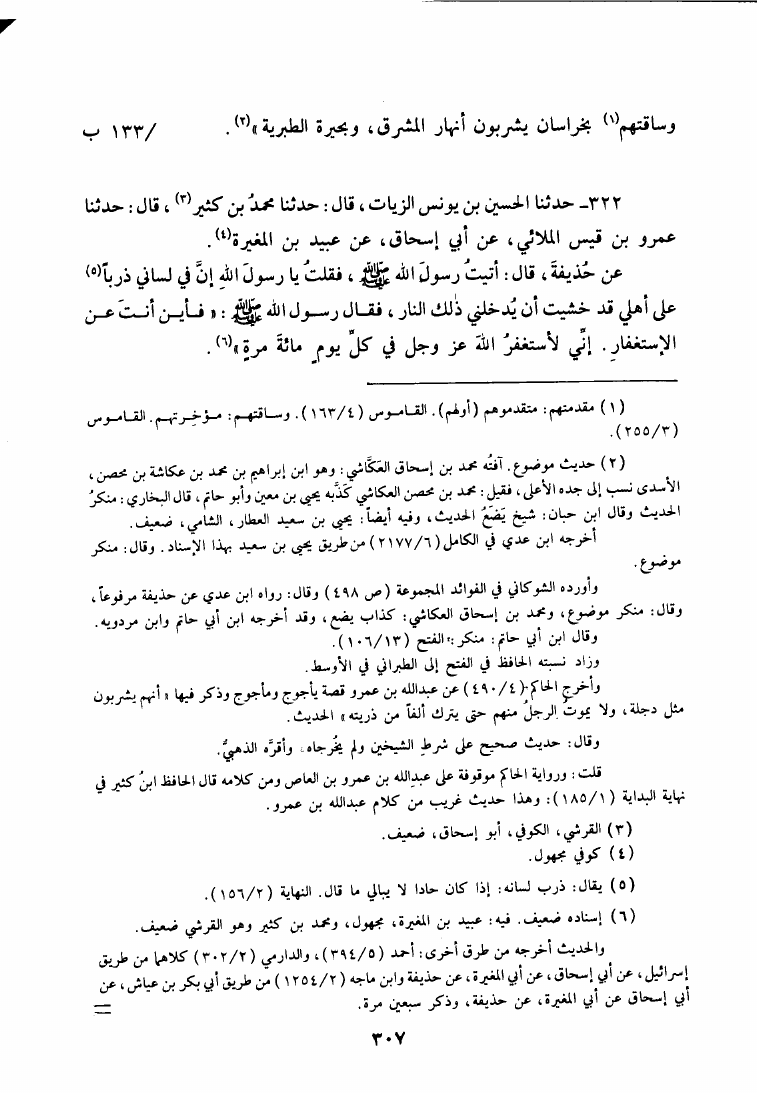 وساقتهم(١) بخراسان يشربون أنهار المشرق، وبحيرة الطبرية»(٢). /١٣٣ ب
٣٢٢ـ حدثنا الحسين بن يونس الزيات، قال: حدثنا محمدُ بن كثير(٣)، قال: حدثنا
عمرو بن قيس الملائي، عن أبي إسحاق، عن عبيد بن المغيرة(٤).
عن حُذيفةَ، قال: أتيتُ رسولَ الله ﷺ، فقلتُ يا رسولَ اللهِ إنَّ في لساني ذرباً(٥)
على أهلي قد خشيت أن يُدخلني ذٰلك النار، فقال رسول الله ﷺ: «فأين أنتَ عن
الإستغفارِ. إنِّي لأستغفرُ اللهَ عز وجل في كلِّ يومٍ مائةَ مرةٍ»(٦).
(١) مقدمتهم: متقدموهم (أولهم). القاموس (١٦٣/٤). وساقتهم: مؤخرتهم. القاموس
(٢٥٥/٣).
(٢) حديث موضوع. آفتُه محمد بن إسحاق العَكَّاشي: وهو ابن إبراهيم بن محمد بن عكاشة بن محصن،
الأسدى نسب إلى جده الأعلى، فقيل: محمد بن محصن العكاشي كَذَّبه يحيى بن معين وأبو حاتم، قال البخاري: منكرُ
الحديث وقال ابن حبان: شيخ يَضَعُ الحديث، وفيه أيضاً: يحيى بن سعيد العطار، الشامي، ضعيف.
أخرجه ابن عدي في الكامل (٢١٧٧/٦) من طريق يحيى بن سعيد بهذا الإسناد. وقال: منكر
موضوع.
وأورده الشوكاني في الفوائد المجموعة (ص ٤٩٨) وقال: رواه ابن عدي عن حذيفة مرفوعاً،
وقال: منكر موضوع، ومحمد بن إسحاق العكاشي: كذاب يضع، وقد أخرجه ابن أبي حاتم وابن مردويه.
وقال ابن أبي حاتم: منكر: الفتح (١٠٦/١٣).
وزاد نسبته الحافظ في الفتح إلى الطبراني في الأوسط.
وأخرج الحاكم (٤٩٠/٤) عن عبدالله بن عمرو قصة يأجوج ومأجوج وذكر فيها «أنهم يشربون
مثل دجلة، ولا يموتُ الرجلُ منهم حتى يترك ألفاً من ذريته» الحديث.
وقال: حديث صحيح على شرطِ الشيخين ولم يُخرجاه، وأقرَّه الذهبيُّ.
قلت: ورواية الحاكم موقوفة على عبدالله بن عمرو بن العاص ومن كلامه قال الحافظ ابنُ كثير في
نهاية البداية (١٨٥/١): وهذا حديث غريب من كلام عبدالله بن عمرو.
(٣) القرشي، الكوفي، أبو إسحاق، ضعيف.
(٤) كوفي مجهول.
(٥) يقال: ذرب لسانه: إذا كان حادا لا يبالي ما قال. النهاية (١٥٦/٢).
(٦) إسناده ضعيف. فيه: عبيد بن المغيرة، مجهول، ومحمد بن كثير وهو القرشي ضعيف.
والحديث أخرجه من طرق أخرى: أحمد (٣٩٤/٥)، والدارمي (٣٠٢/٢) كلاهما من طريق
إسرائيل، عن أبي إسحاق، عن أبي المغيرة، عن حذيفة وابن ماجه (١٢٥٤/٢) من طريق أبي بكر بن عياش، عن
أبي إسحاق عن أبي المغيرة، عن حذيفة، وذكر سبعين مرة. =
٣٠٧